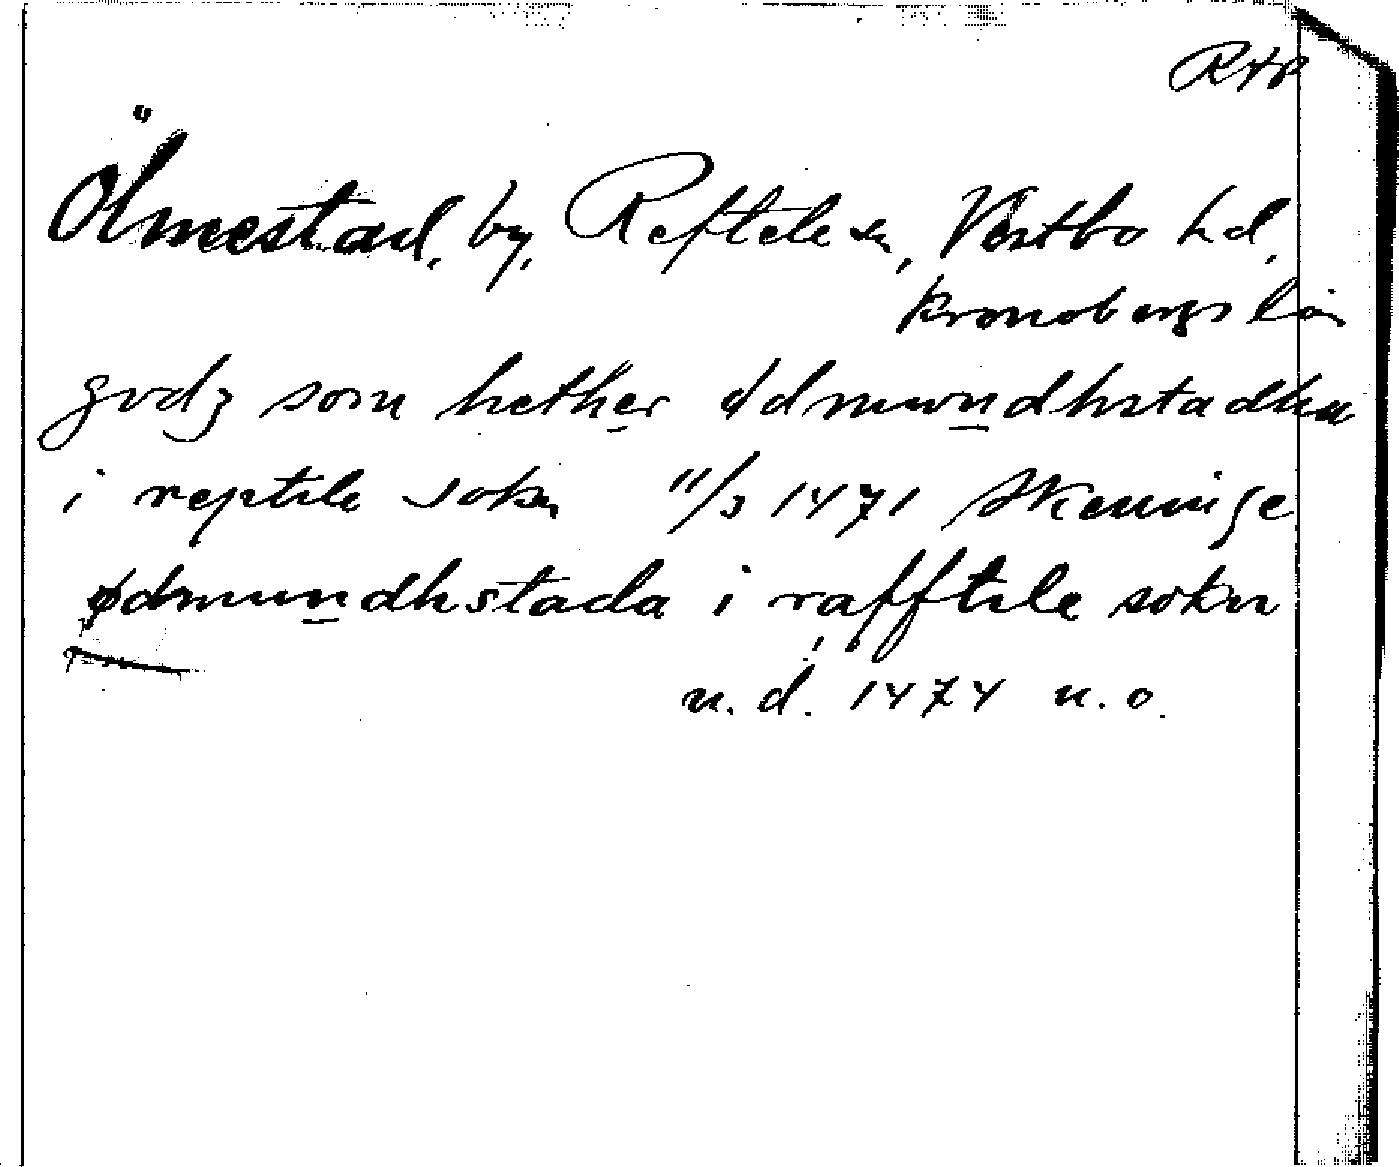 RAP
Ölmestad, by, Reftele sn, Västbo hd,
Kronobergs län
godz som hether ødmwndhstadha
i reptile sokn 11/3 1471 Skeninge
ødmundhstada i rafftile sokn
u. d. 1474 u. o.